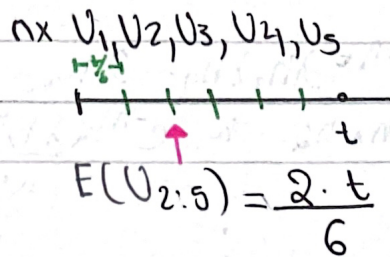 nx U1, U2, U3, U4, U5
t/6
t
E(U2:5) = 2·t / 6